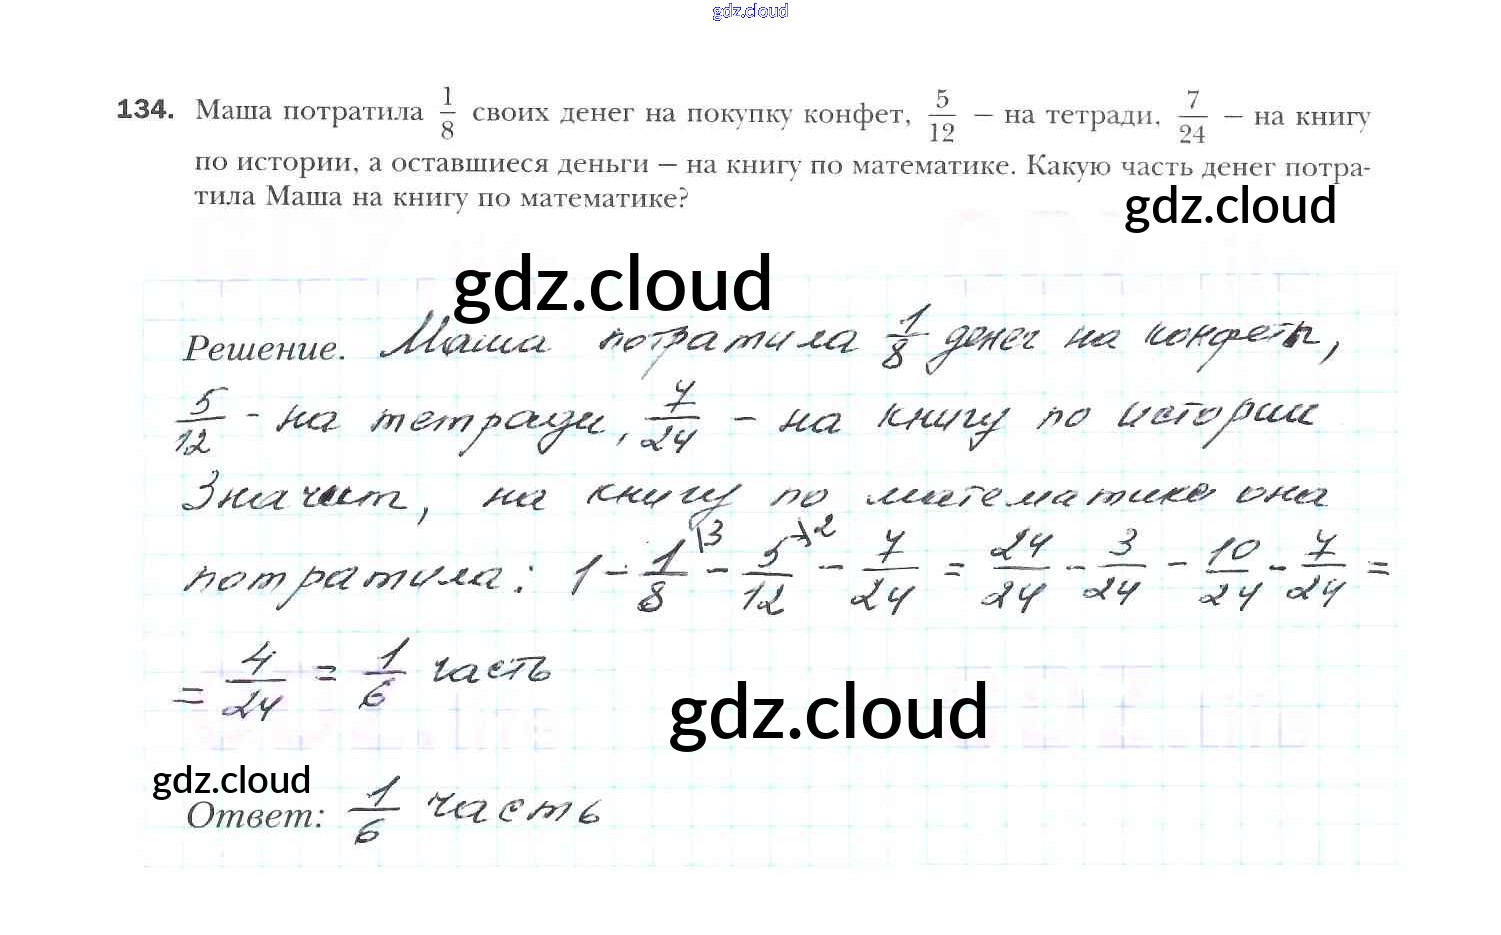 gdz.cloud
134. Маша потратила 1/8 своих денег на покупку конфет, 5/12 — на тетради, 7/24 — на книгу
по истории, а оставшиеся деньги — на книгу по математике. Какую часть денег потра-
тила Маша на книгу по математике?
gdz.cloud
gdz.cloud
Решение. Маша потратила 1/8 денег на конфеты,
5/12 - на тетради, 7/24 - на книгу по истории
Значит, на книгу по математике она
потратила: 1 - 1/8 \3 - 5/12 \2 - 7/24 = 24/24 - 3/24 - 10/24 - 7/24 =
= 4/24 = 1/6 часть
gdz.cloud
gdz.cloud
Ответ: 1/6 часть